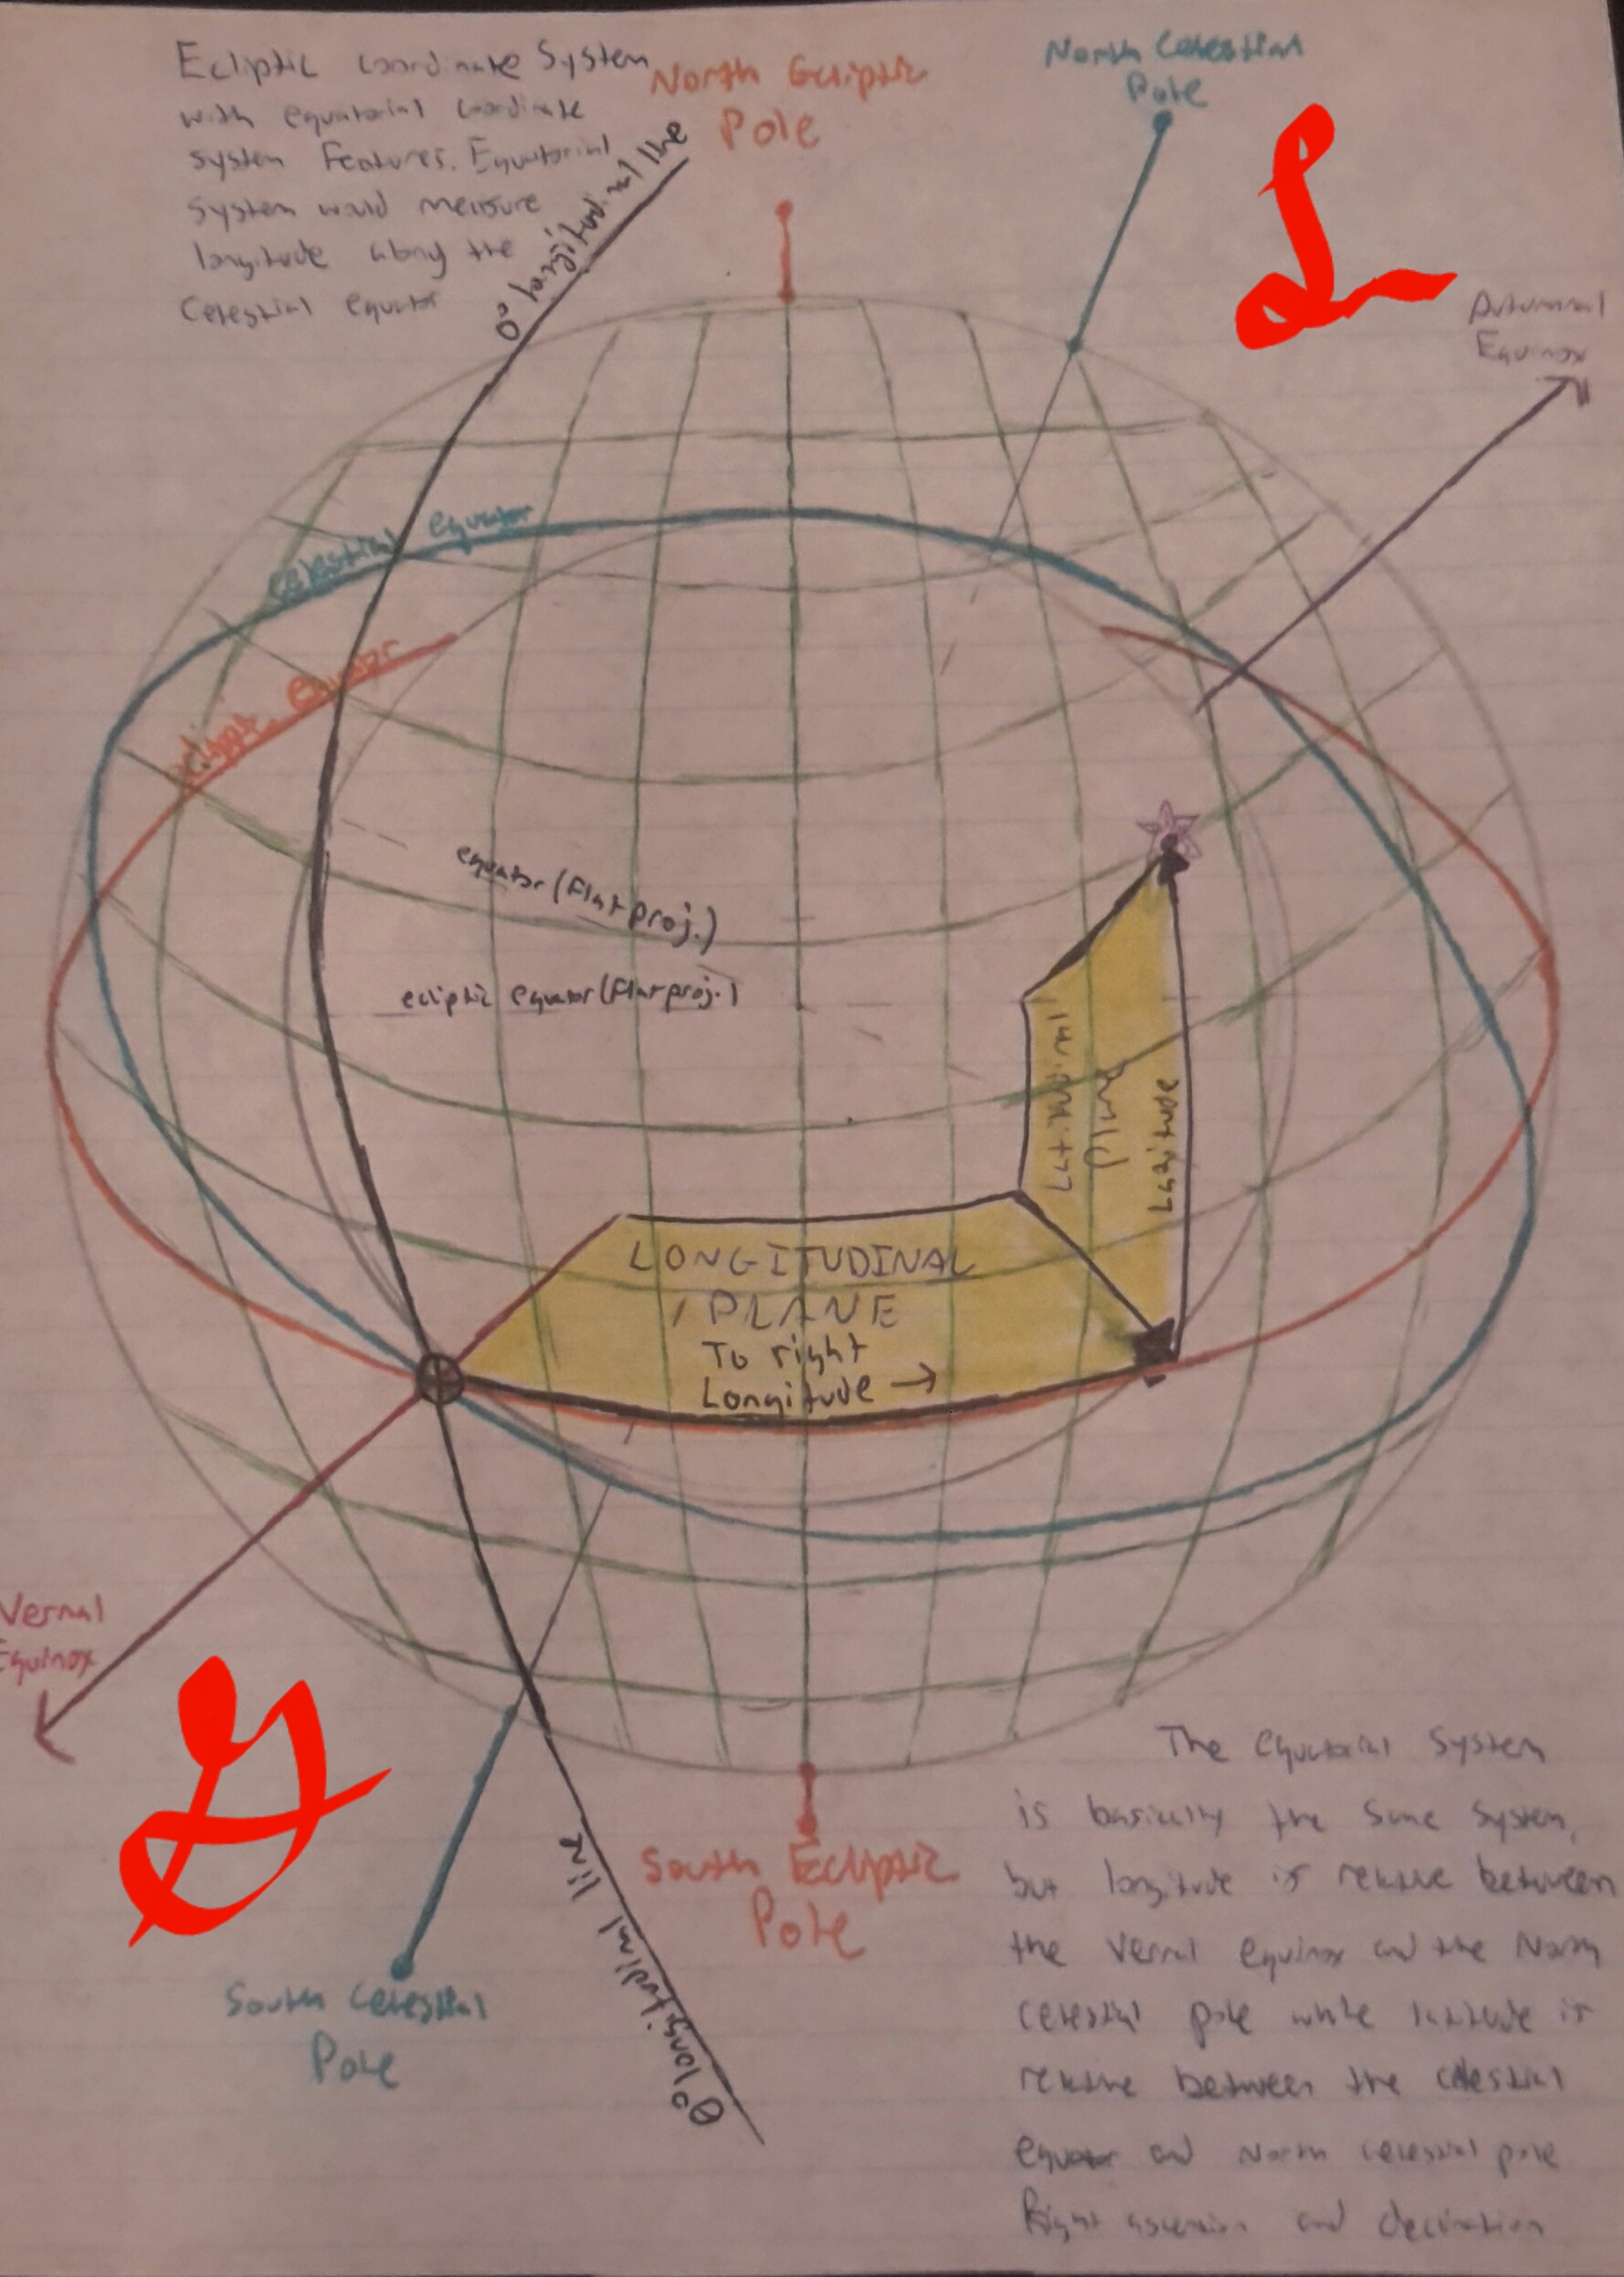 Ecliptic coordinate System
with equatorial coordinate
system Features. Equatorial
System would measure
longitude along the
Celestial equator
North Ecliptic
Pole
North Celestial
Pole
0° longitudinal line
Autumnal
Equinox
celestial equator
ecliptic equator
equator (Flat proj.)
ecliptic equator (Flat proj.)
Latitudinal
Plane
Latitude
LONGITUDINAL
PLANE
To right
Longitude →
Vernal
Equinox
South Ecliptic
Pole
0° longitudinal line
South Celestial
Pole
The equatorial System
is basically the same system,
but longitude is relative between
the Vernal equinox and the North
celestial pole while latitude is
relative between the celestial
equator and North celestial pole
Right ascension and declination